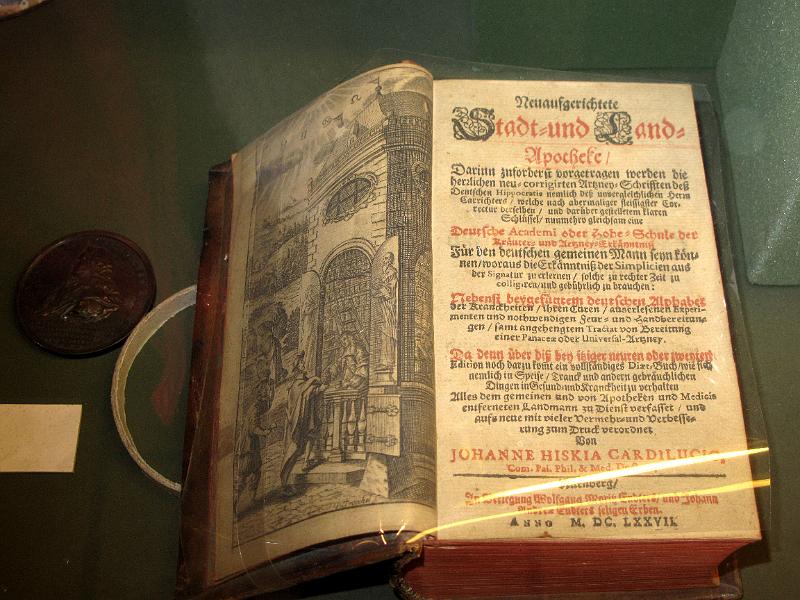 Neuaufgerichtete
Stadt-und Land-
Apotheke/
Darinn zuforderst vorgetragen werden die
herzlichen neu-corrigirten Artzney-Schrifften deß
Deutschen Hippocratis nemlich deß unvergleichlichen Herrn
Carrichters/ welche nach abermaliger fleissigster Cor-
rectur derselben/ und darüber gestelletem klaren
Schlüssel/ nunmehro gleichsam eine
Deutsche Academi oder Hohe-Schule der
Kräuter- und Artzney-Erkänntniß
Für den deutschen gemeinen Mann seyn kön-
nen/woraus die Erkänntniß der Simplicien aus
der Signatur zu erlernen/ solche zu rechter Zeit zu
colligiren/und gebührlich zu brauchen:
Nebenst beygefügtem deutschen Alphabet
der Kranckheiten/ ihren Curen/ auserlesenen Experi-
menten und nothwendigen Feur- und Handbereitun-
gen/ samt angehengtem Tractat von Bereitung
einer Panaceæ oder Universal-Artzney.
Da denn über diß bey itziger neuren oder zweyten
Edition noch darzu komt ein vollständiges Diæt-Buch/wie sich
nemlich in Speise/ Tranck und andern gebräuchlichen
Dingen in Gesund-und Kranckheit zu verhalten
Alles dem gemeinen und von Apotheken und Medicis
entferneten Landmann zu Dienst verfasset/ und
aufs neue mit vieler Vermehr-und Verbesse-
rung zum Druck verordnet
Von
JOHANNE HISKIA CARDILUCIO,
Com. Pal. Phil. & Med.
Nürnberg/
In Verlegung Wolfgang Moritz Endters/ und Johann
Andreæ Endters seligen Erben.
ANNO M. DC. LXXVII.